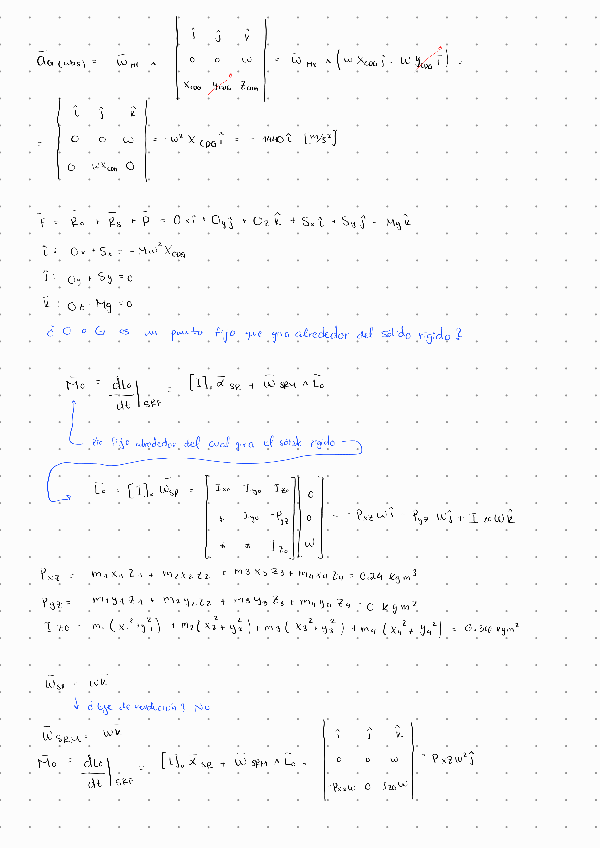 ā_G(abs) = w̄_MR ∧ | î ĵ k̂ ; 0 0 w ; x_CDG y_CDG z_CDG | = w̄_MR ∧ (w x_CDG ĵ - w y_CDG î) =
= | î ĵ k̂ ; 0 0 w ; 0 w x_CDG 0 | = -w² x_CDG î = -1440 î [m/s²]
F̄ = R̄o + R̄s + P̄ = Ox î + Oy ĵ + Oz k̂ + Sx î + Sy ĵ - Mg k̂
î: Ox + Sx = -Mw² x_CDG
ĵ: Oy + Sy = 0
k̂: Oz - Mg = 0
¿ O o G es un punto fijo que gira alrededor del sólido rígido ?
M̄o = dL̄o/dt |SRF = [I]o ᾱ_SR + w̄_SRM ∧ L̄o
fijo alrededor del cual gira el sólido rígido
L̄o = [I]o w̄_SR = [ Ixo Iyo Izo ; * Iyo -Pyz ; * * Izo ] [ 0 ; 0 ; w ] = -Pxz w î - Pyz w ĵ + I zo w k̂
Pxz = m1x1z1 + m2x2z2 + m3x3z3 + m4x4z4 = 0.24 kgm²
Pyz = m1y1z1 + m2y2z2 + m3y3z3 + m4y4z4 = 0 kgm²
I zo = m1(x1² + y1²) + m2(x2² + y2²) + m3(x3² + y3²) + m4(x4² + y4²) = 0.36 kgm²
w̄_SR = wk̂
↓ ¿ Eje de revolución ? NO
w̄_SRM = wk̂
M̄o = dL̄o/dt |SRF = [I]o ᾱ_SR + w̄_SRM ∧ L̄o = | î ĵ k̂ ; 0 0 w ; -Pxzw 0 Izow | = -Pxzw² ĵ